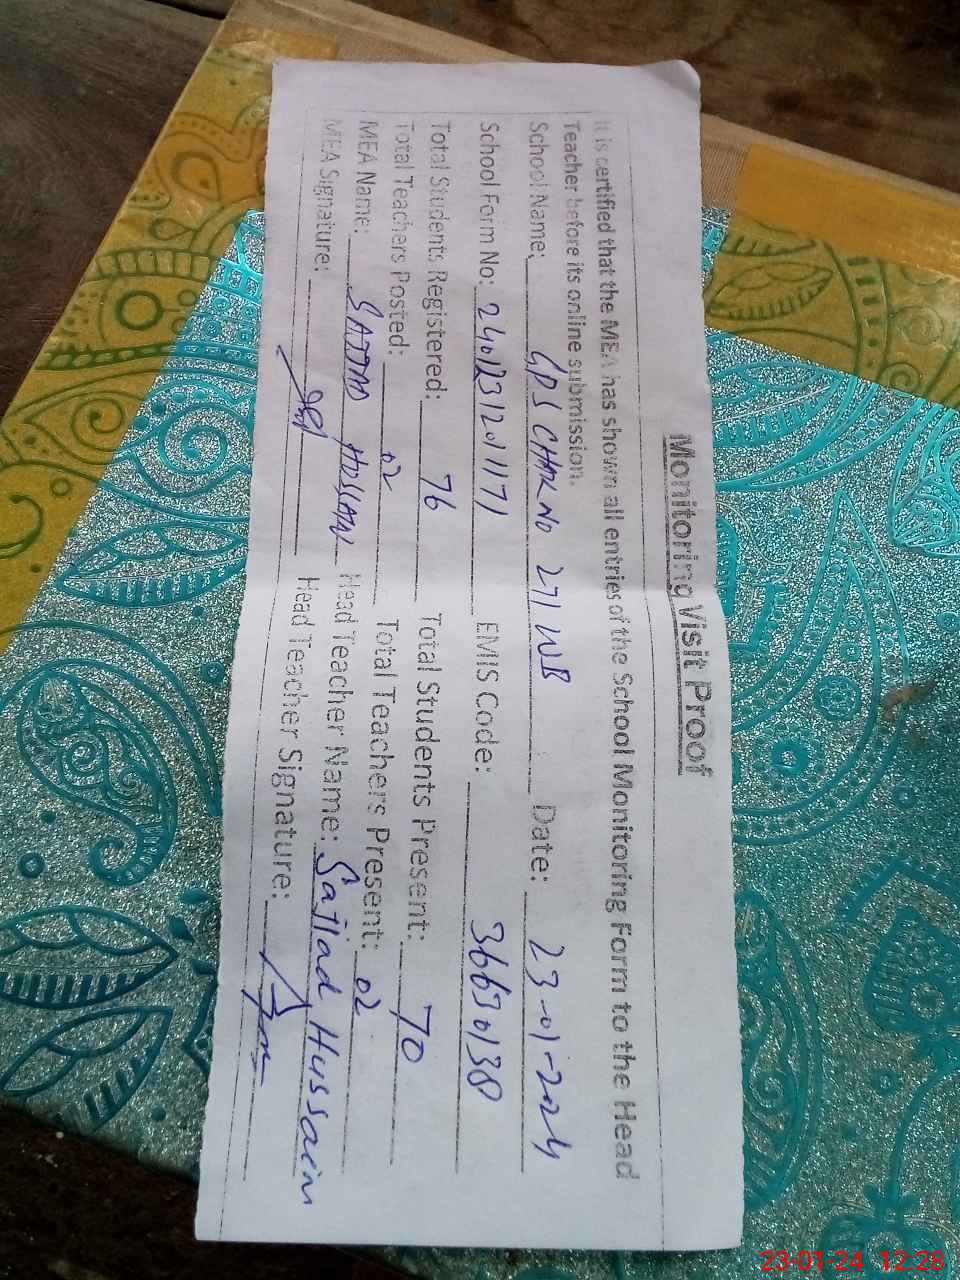 Monitoring Visit Proof
It is certified that the MEA has shown all entries of the School Monitoring Form to the Head
Teacher before its online submission.
School Name: GPS CHAK NO 271 WB Date: 23-01-2024
School Form No: 2401231201171 EMIS Code: 36630138
Total Students Registered: 76 Total Students Present: 70
Total Teachers Posted: 02 Total Teachers Present: 02
MEA Name: SAJJAD HUSSAIN Head Teacher Name: Sajjad Hussain
MEA Signature: Head Teacher Signature:
23-01-24 12:28